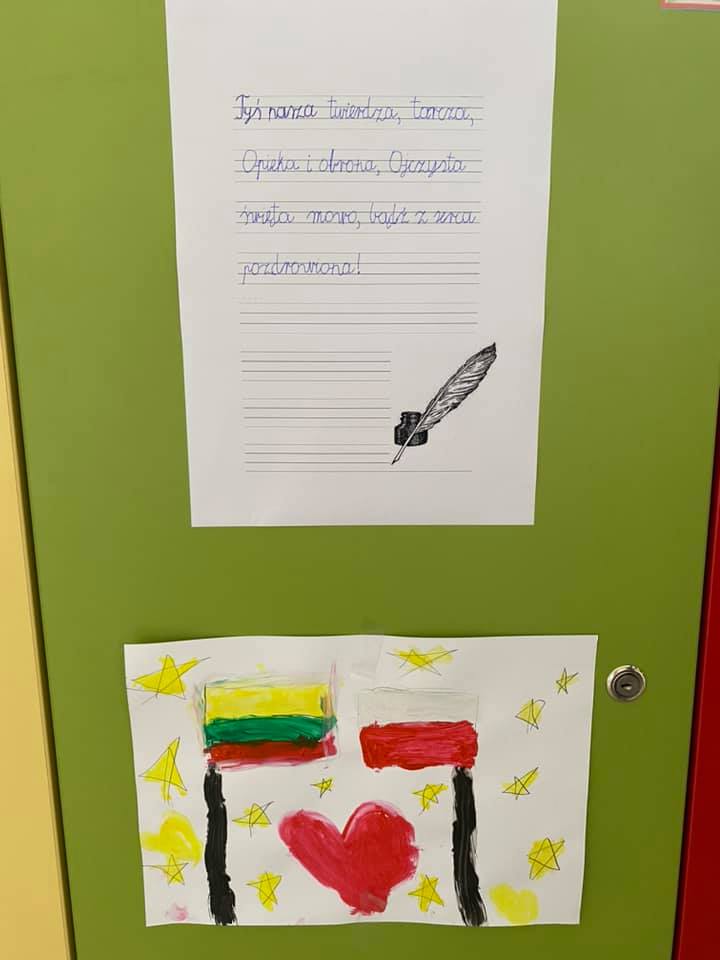 Tyś nasza twierdza, tarcza,
Opieka i obrona, Ojczysta
święta mowo, bądź z serca
pozdrowiona!